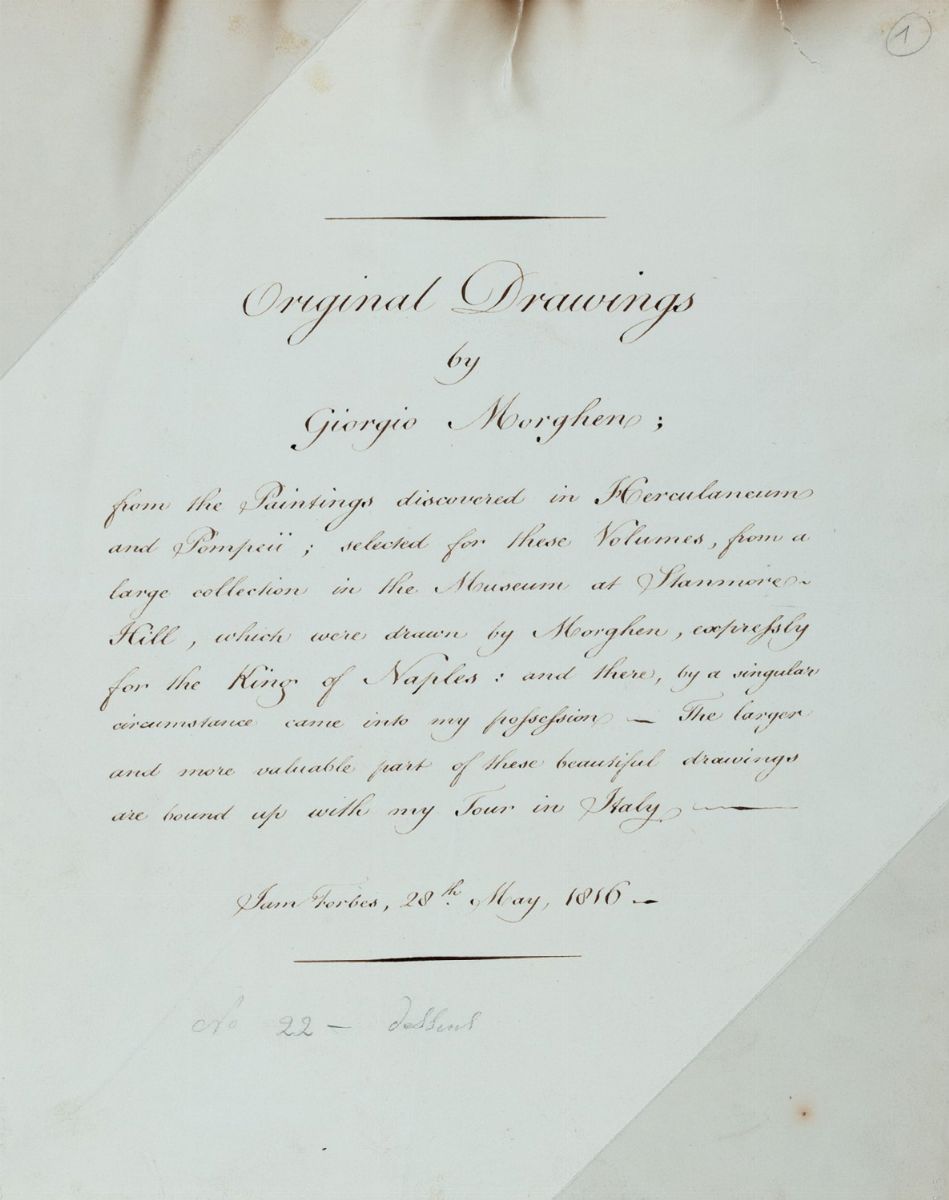 1
Original Drawings
by
Giorgio Morghen ;
from the Paintings discovered in Herculaneum
and Pompeii ; selected for these Volumes, from a
large collection in the Museum at Stanmore~
Hill, which were drawn by Morghen, expreſsly
for the King of Naples : and there, by a singular
circumstance came into my poſseſsion — The larger
and more valuable part of these beautiful drawings
are bound up with my Tour in Italy —
Jam Forbes, 28th. May, 1816 —
No 22 — dessins